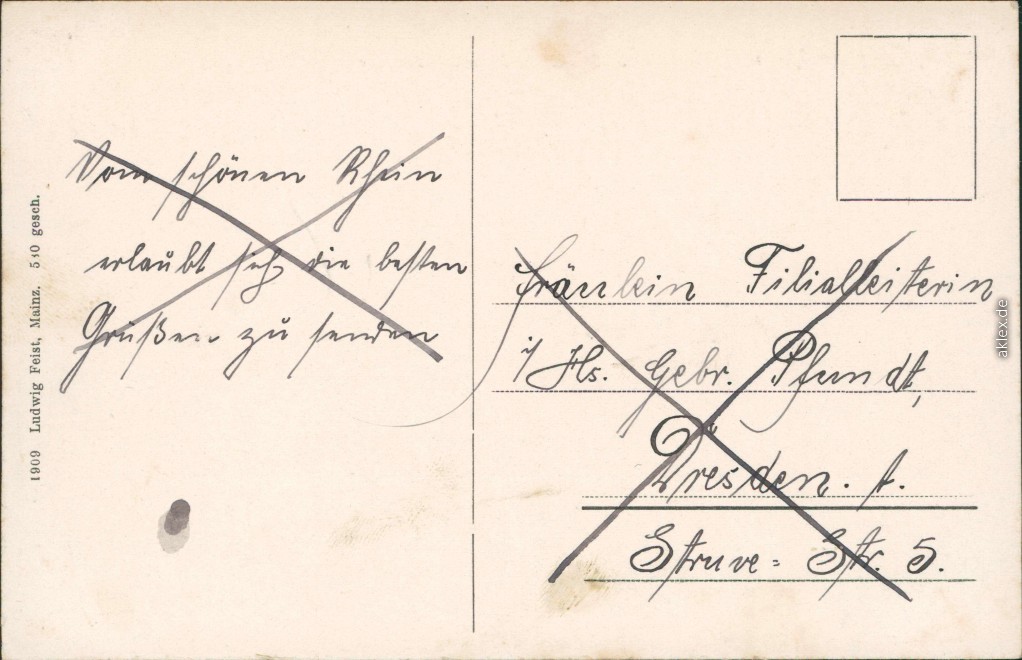 Vom schönen Rhein
erlaubt sich die besten
Grüßen zu senden
Fräulein Filialleiterin
i/ Hs. Gebr. Pfundt,
Dresden. A.
Struve= Str. 5.
1909 Ludwig Feist, Mainz. 540 gesch.
aklex.de